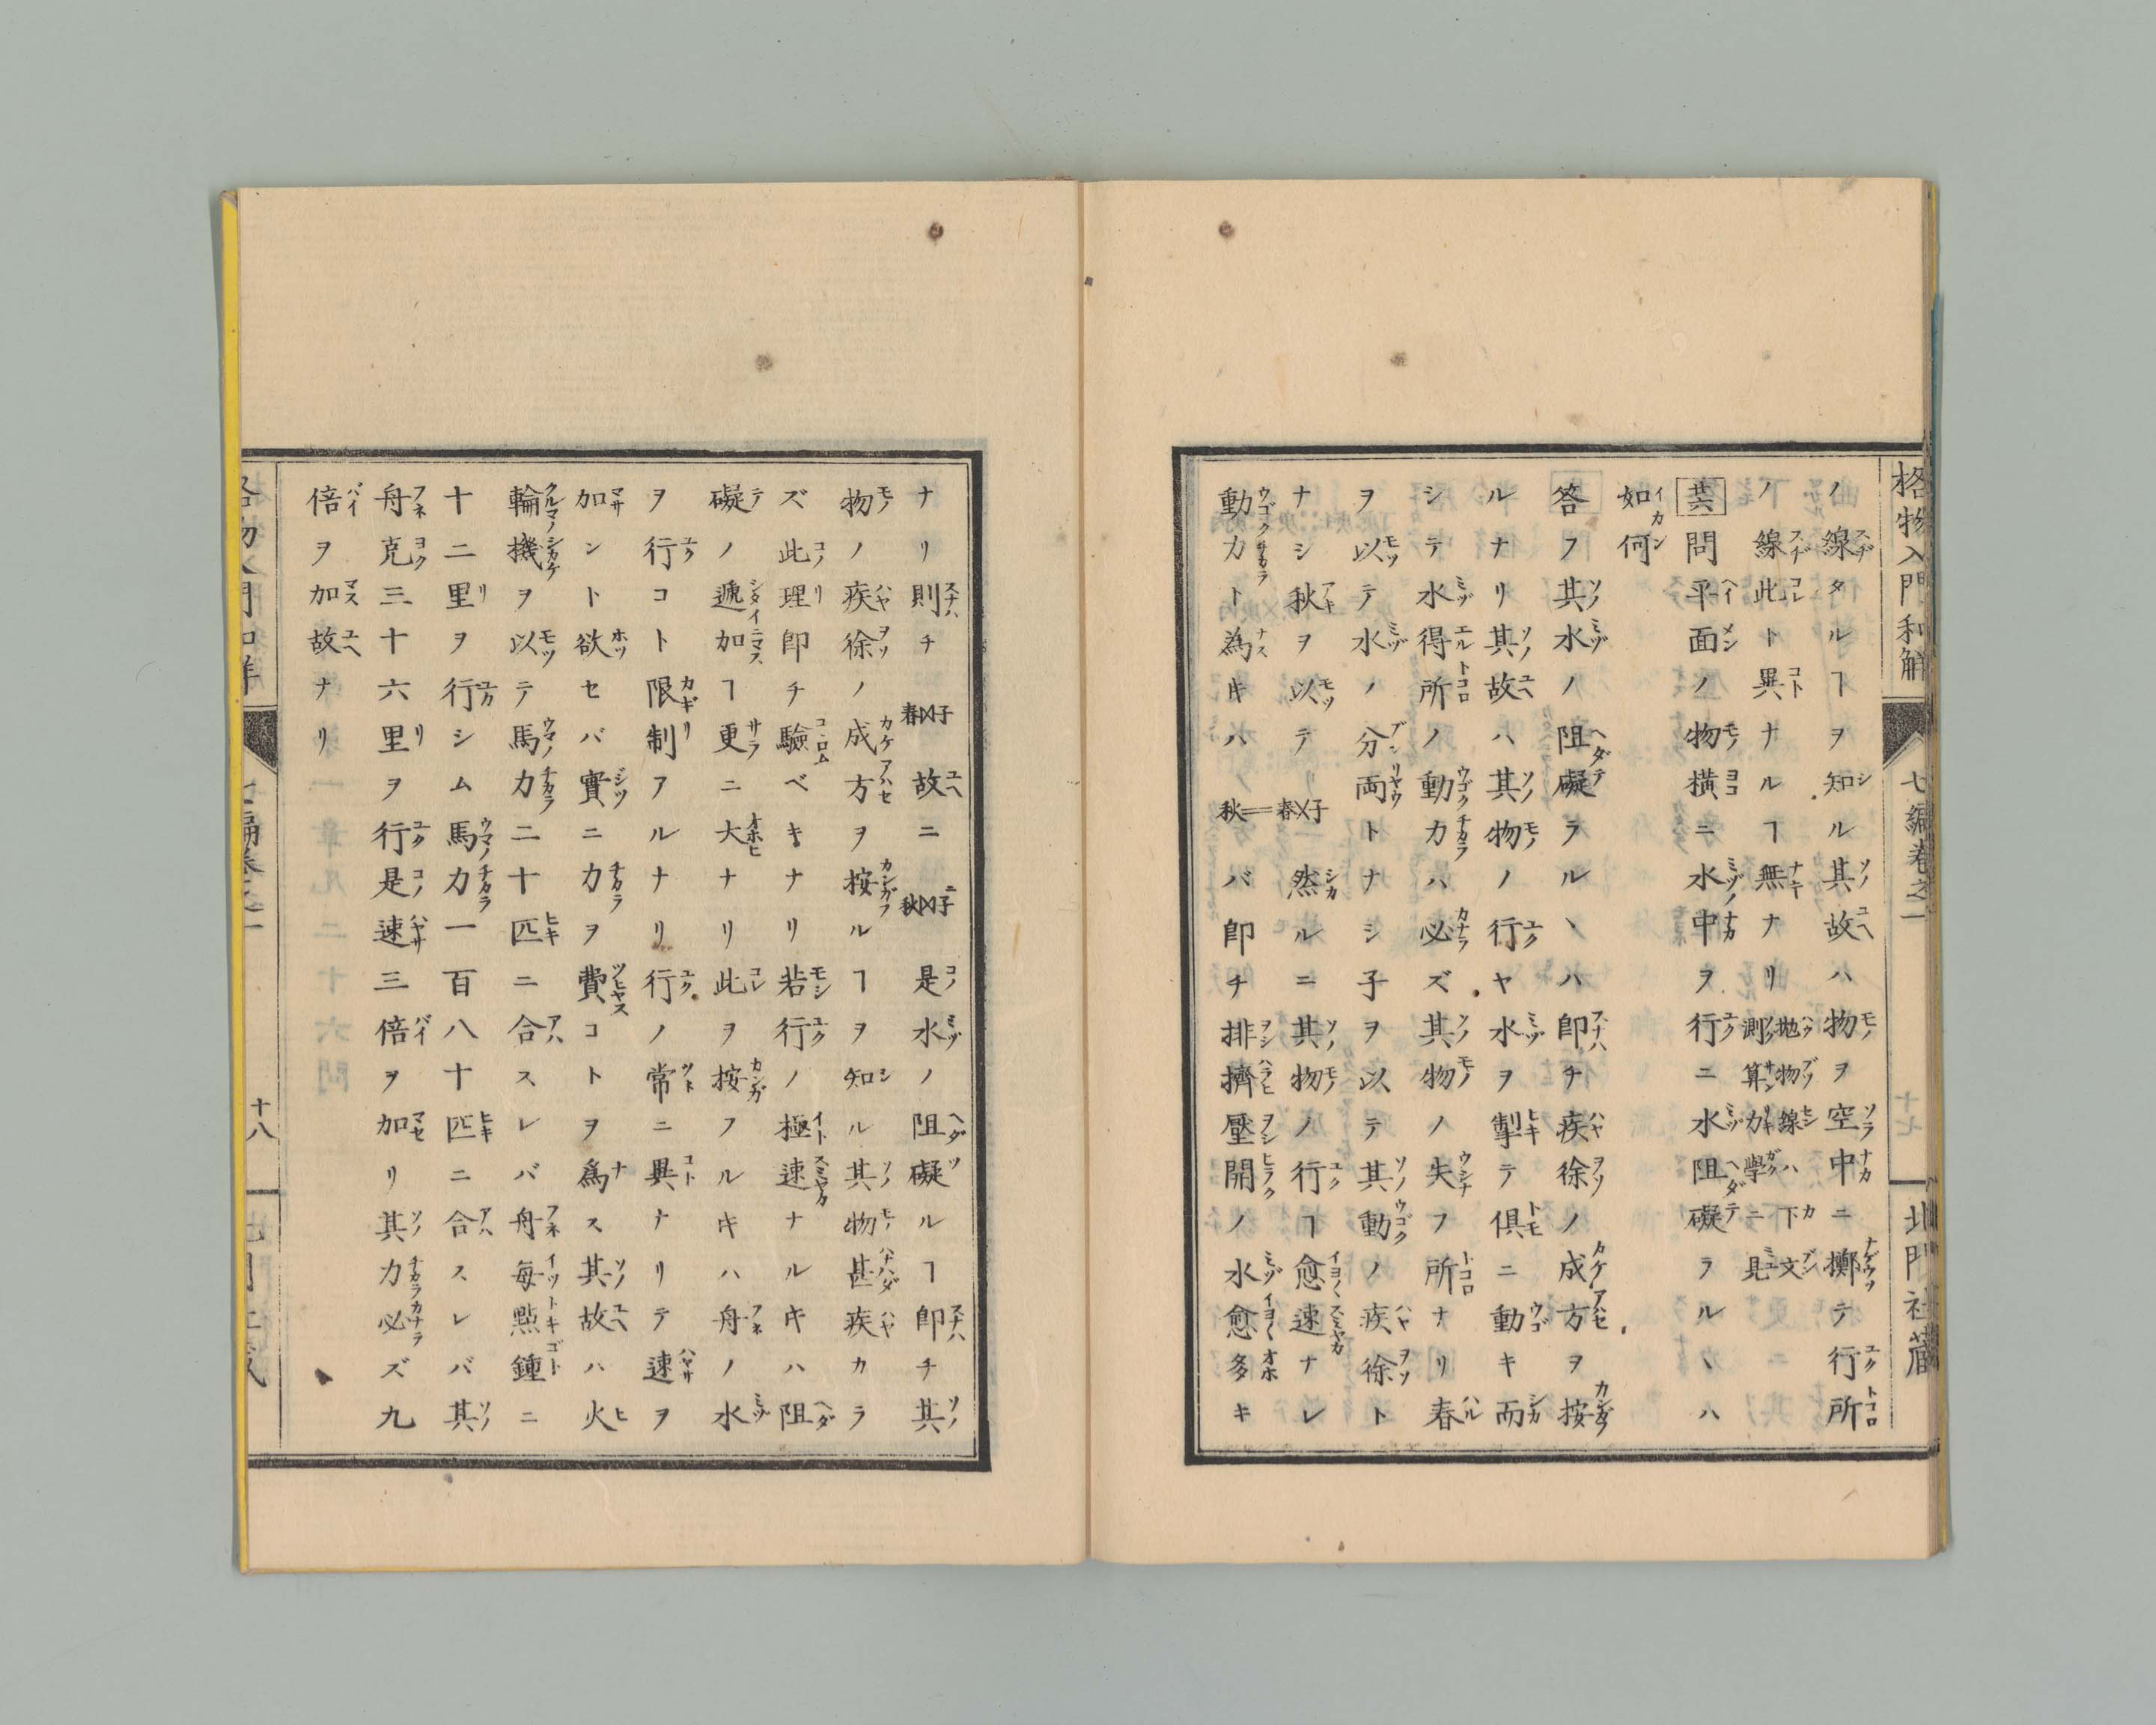 格物入門和解 七編卷之一 十七 北門社蔵
ノ線タルヿヲ知ル其故ハ物ヲ空中ニ擲テ行所
ノ線此ト異ナルヿ無ナリ拋物線ハ下文測算力學ニ見ユ
廿六問平面ノ物橫ニ水中ヲ行ニ水阻礙ラルヽハ
如何
答フ其水ノ阻礙ラルヽハ卽チ疾徐ノ成方ヲ按
ルナリ其故ハ其物ノ行ヤ水ヲ掣テ俱ニ動キ而
シテ水得所ノ動力ハ必ズ其物ノ失フ所ナリ春
ヲ以テ水ノ分兩トナシ子ヲ以テ其動ノ疾徐ト
ナシ秋ヲ以テ秋=春×子然ルニ其物ノ行ヿ愈速ナレ
動力ト為キハ バ卽チ排擠壓開ノ水愈多キ
ナリ則チ春⋈子故ニ秋⋈子是水ノ阻礙ルヿ卽チ其
物ノ疾徐ノ成方ヲ按ルヿヲ知ル其物甚疾カラ
ズ此理卽チ驗ベキナリ若行ノ極速ナルキハ阻
礙ノ遞加ヿ更ニ大ナリ此ヲ按フルキハ舟ノ水
ヲ行コト限制アルナリ行ノ常ニ異ナリテ速ヲ
加ント欲セバ實ニ力ヲ費コトヲ爲ス其故ハ火
輪機ヲ以テ馬力二十匹ニ合スレバ舟每點鐘ニ
十二里ヲ行シム馬力一百八十匹ニ合スレバ其
舟克三十六里ヲ行是速三倍ヲ加リ其力必ズ九
倍ヲ加故ナリ
十八